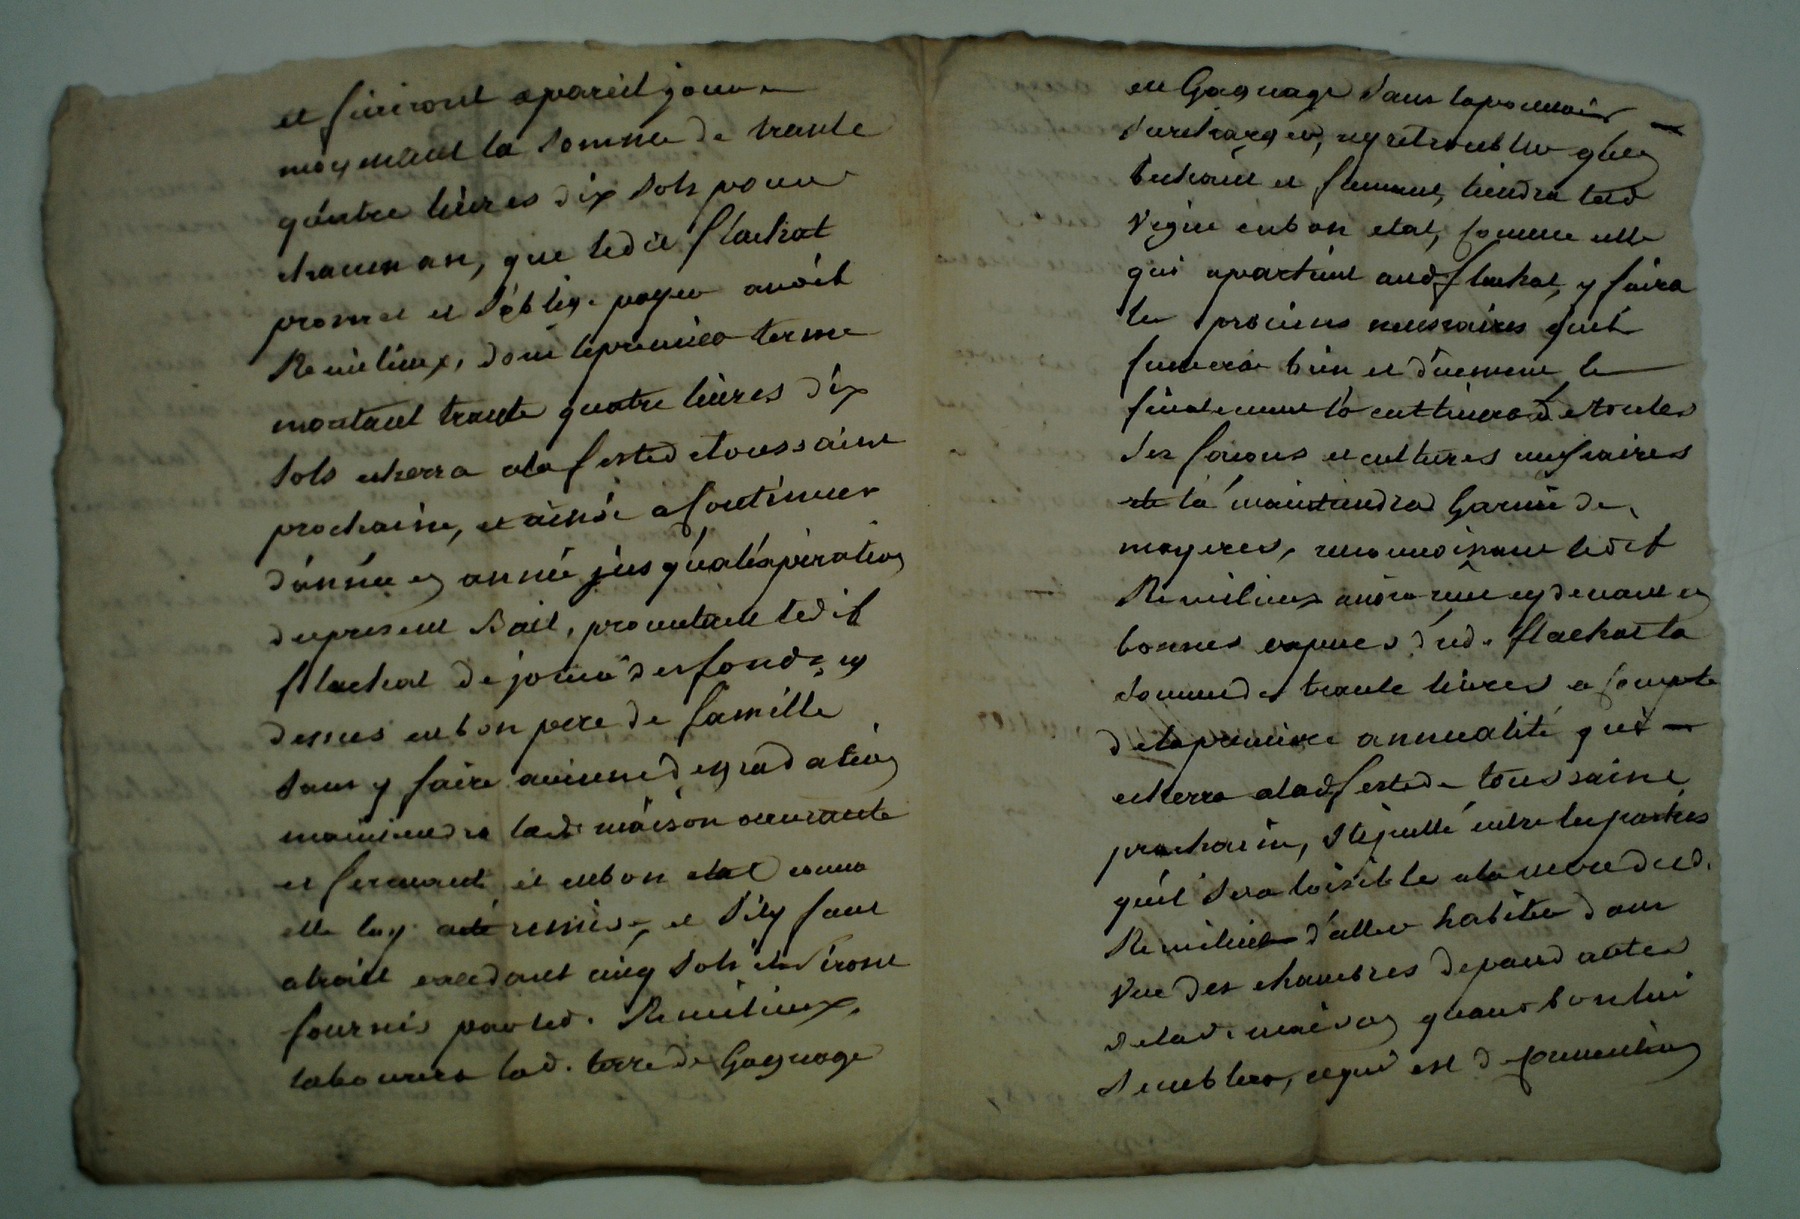 et finiront apareil jour
moyenant la somme de trante
quatre livres dix sols pour
chacun an, que ledit flachat
promet et s'oblige payer audit
Remilieux, dont le premier terme
montant trante quatre livres dix
sols echerra ala feste de toussaint
prochaine, et ainsi a Continuer
d'année en année jusqu'a lexpiration
du present Bail, promettant ledit
flachat de jouir des fonds cy
dessus en bon pere de famille
sans y faire aucune degradation
maintiendra lad. maison ouvrante
et fermante et en bon etat comme
elle luy a été remise, et s'il y faut
excedant cinq sols ils seront
fournis par led. Remilieux,
labourera lad. terre de Gagnage
en Gagnage sans la pouvoir
surcharger, ny retroubler qu'en
et tiendra lad
vigne en bon etat, Comme elle
qui apartient aud flachat, y faira
les provins necessaires qu'il
fumera bien et duement et
finalement la cultivera de toutes
ses façons et cultures necessaires
et la maintiendra Garnie de
mayeres, reconnoissant ledit
Remilieux avoir reçu cy devant en
bonnes especes dud. flachat la
somme de trante livres a Compte
de la premiere annualité qui
echerra a lad feste de toussaint
prochain, stipullé entre les parties
qu'il sera loisible a la mere dud.
Remilieux d'aller habiter dans
une des chambres dependantes
de lad. maison quand bon lui
semblera, ce qui est de convention